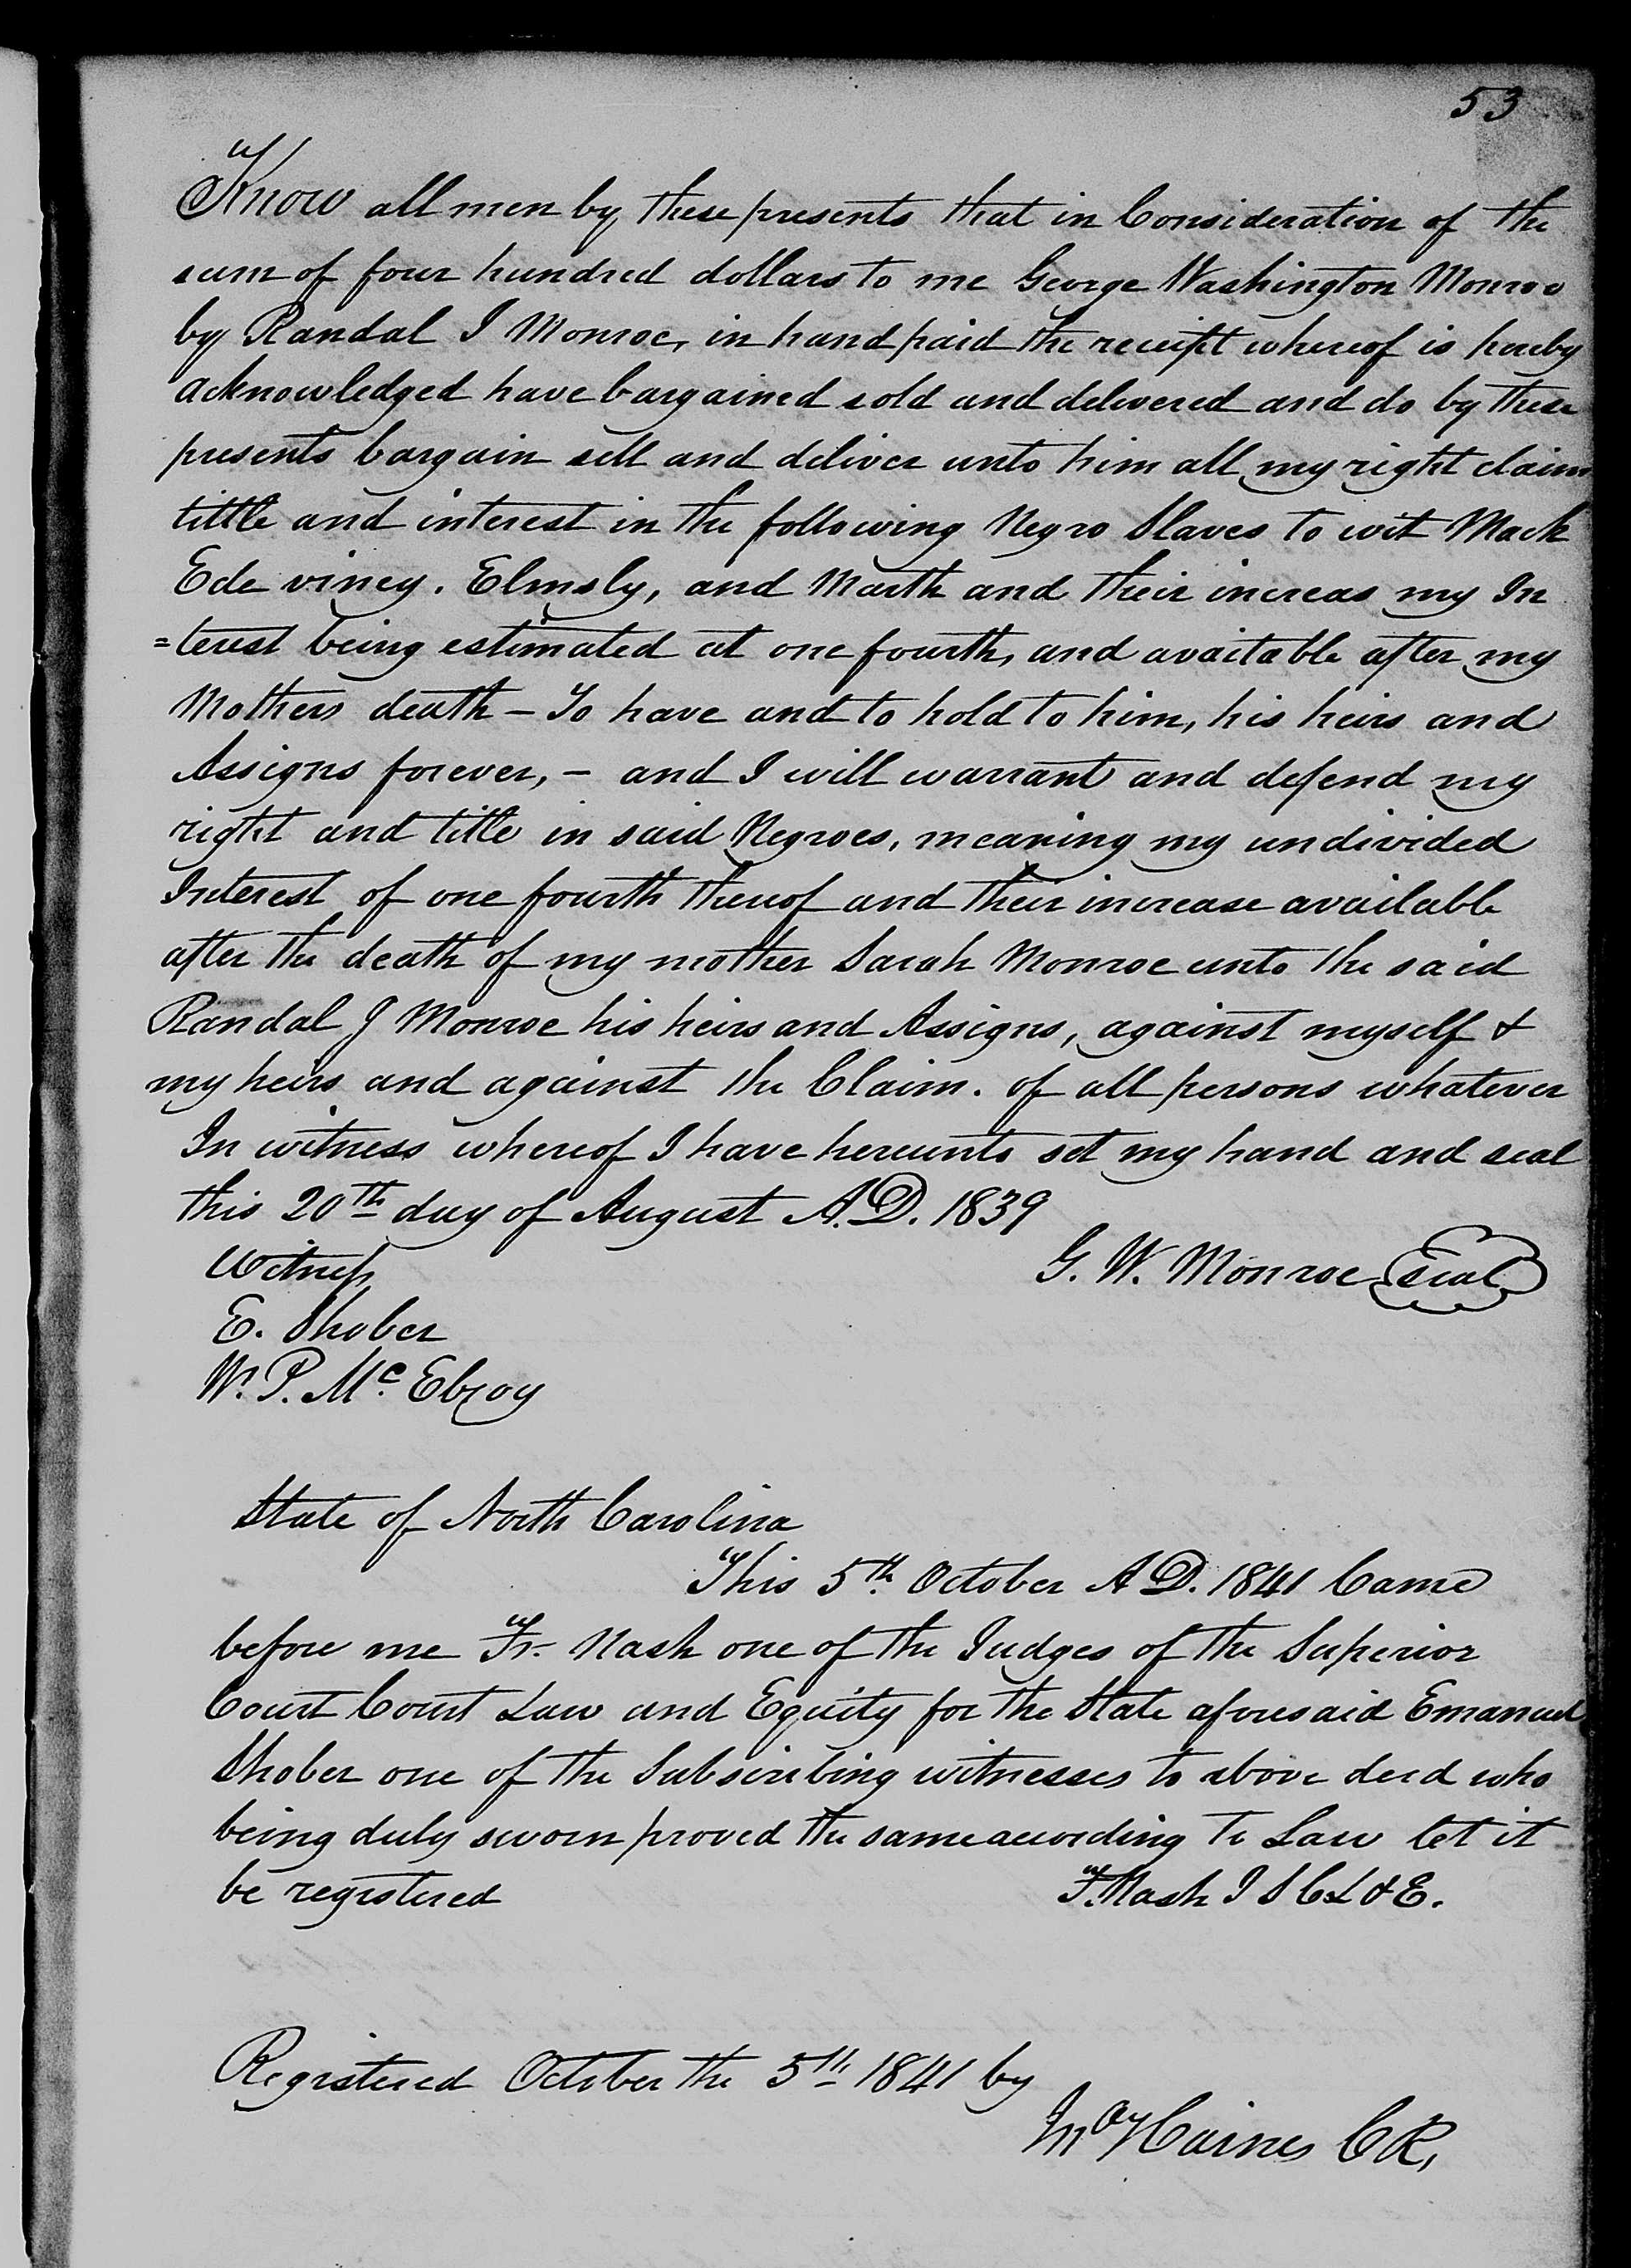 53
Know all men by these presents that in Consideration of the
sum of four hundred dollars to me George Washington Monroe
by Randal J Monroe, in hand paid the receipt whereof is hereby
acknowledged have bargained sold and delivered and do by these
presents bargain sell and deliver unto him all my right claim
tittle and interest in the following Negro Slaves to wit Mack
Ede viney. Elmsly, and Marth and their increas my In
=terest being estimated at one fourth, and available after my
Mothers death – To have and to hold to him, his heirs and
Assigns forever, – and I will warrant and defend my
right and title in said Negroes, meaning my undivided
Interest of one fourth thereof and their increase available
after the death of my mother Sarah Monroe unto the said
Randal J Monroe his heirs and Assigns, against myself &
my heirs and against the Claim. of all persons whatever
In witness whereof I have hereunto set my hand and seal
this 20th day of August A.D. 1839
Witness G. W. Monroe Seal
E. Shober
W. P. Mc. Elroy
State of North Carolina
This 5th. October A D. 1841 Came
before me Fr. Nash one of the Judges of the Superior
Court Court Law and Equity for the State aforesaid Emanuel
Shober one of the Subscribing witnesses to above deed who
being duly sworn proved the same according to Law let it
be registered F. Nash J S C L & E.
Registered October the 5th 1841 by
Jno Haines C R,